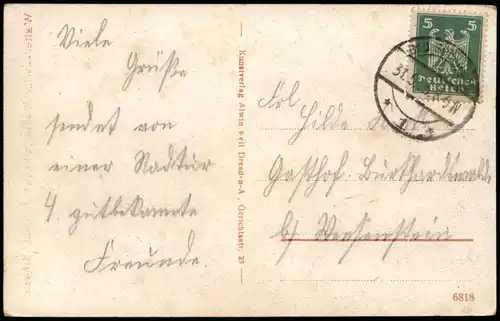 Viele
Grüße
sendet von
einer Radtur
4 gutbekannte
Freunde.
Kunstverlag Alwin Keil Dresden-A., Gerichtsstr. 23
5 5
Deutsches
Reich
31.5
Frl. Hilde
Gasthof Burkhardswalde
b/ Weesenstein
6818